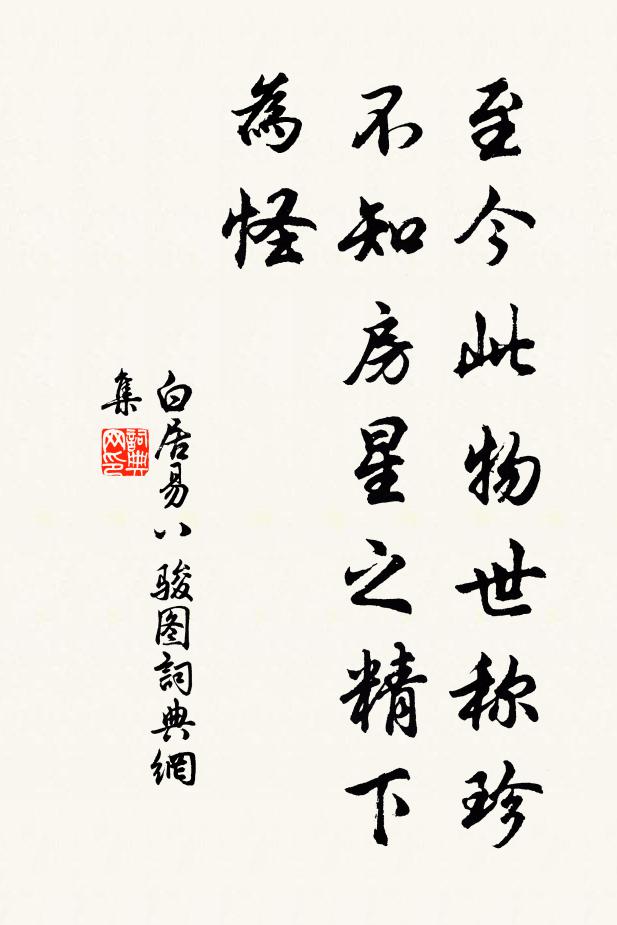 至今此物世称珍
不知房星之精下
為怪
白居易八骏图詞典網
集
詞典
网印